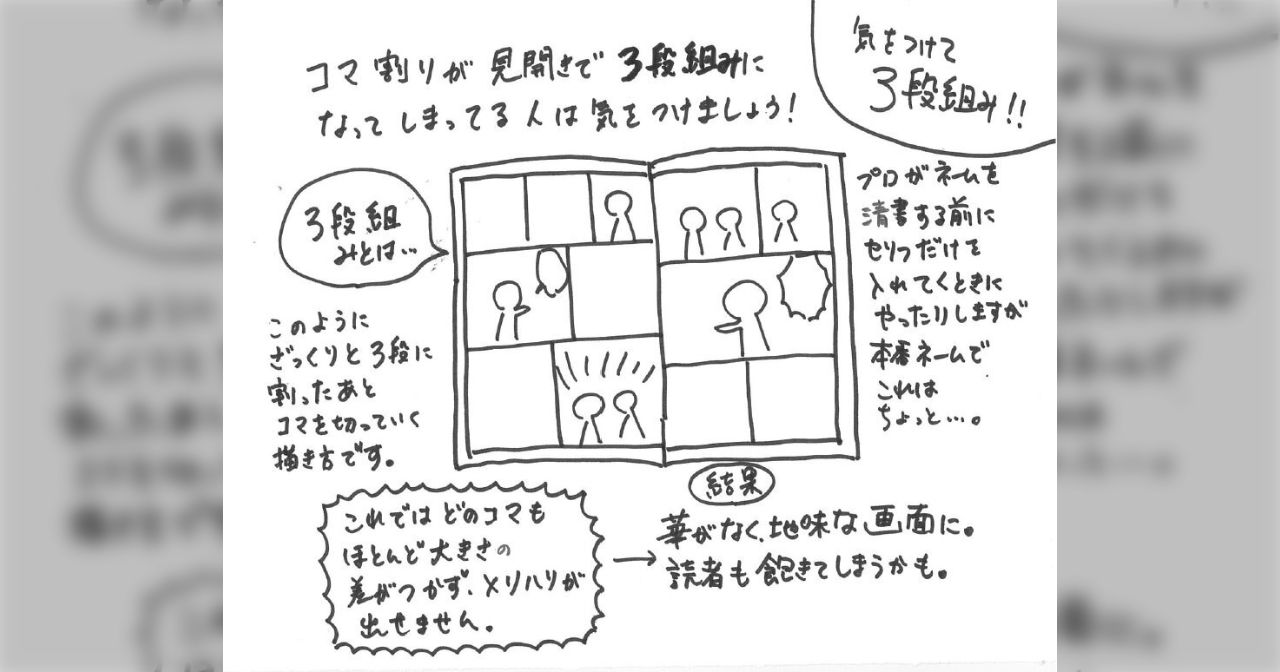 コマ割りが見開きで3段組みに
なってしまってる人は気をつけましょう!
気をつけて
3段組み!!
3段組
みとは…
このように
ざっくりと3段に
割ったあと
コマを切っていく
描き方です。
プロがネームを
清書する前に
セリフだけを
入れてくときに
やったりしますが
本番ネームで
これは
ちょっと…。
これではどのコマも
ほとんど大きさの
差がつかず、メリハリが
出せません。
結果
華がなく、地味な画面に。
読者も飽きてしまうかも。